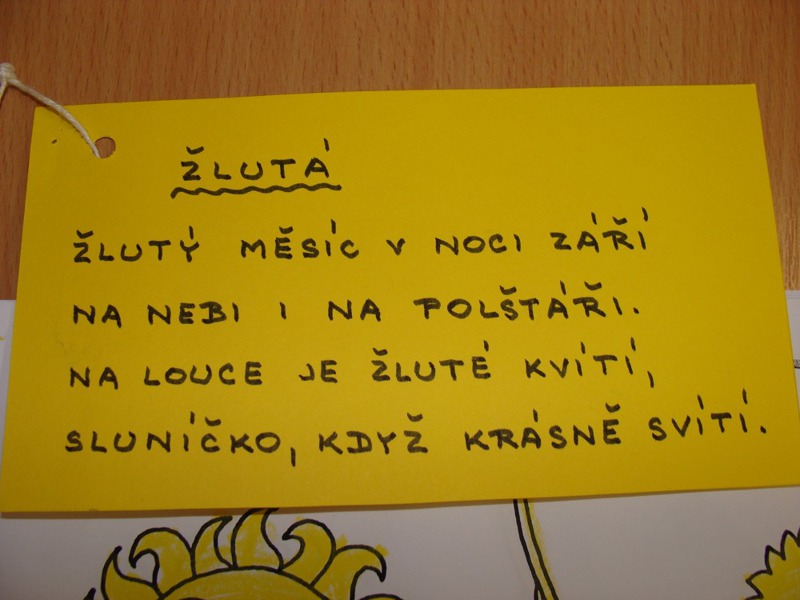 ŽLUTÁ
ŽLUTÝ MĚSÍC V NOCI ZÁŘÍ
NA NEBI I NA POLŠTÁŘI.
NA LOUCE JE ŽLUTÉ KVÍTÍ,
SLUNÍČKO, KDYŽ KRÁSNĚ SVÍTÍ.